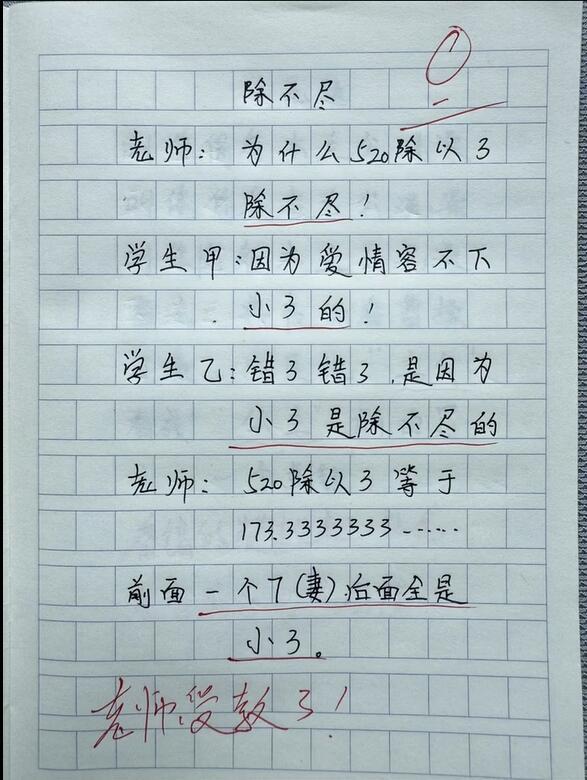 除不尽
老师：为什么520除以3
除不尽！
学生甲：因为爱情容不下
小3的！
学生乙：错3错3，是因为
小3是除不尽的
老师：520除以3等于
173.3333333……
前面一个7(妻)后面全是
小3。
老师受教了！